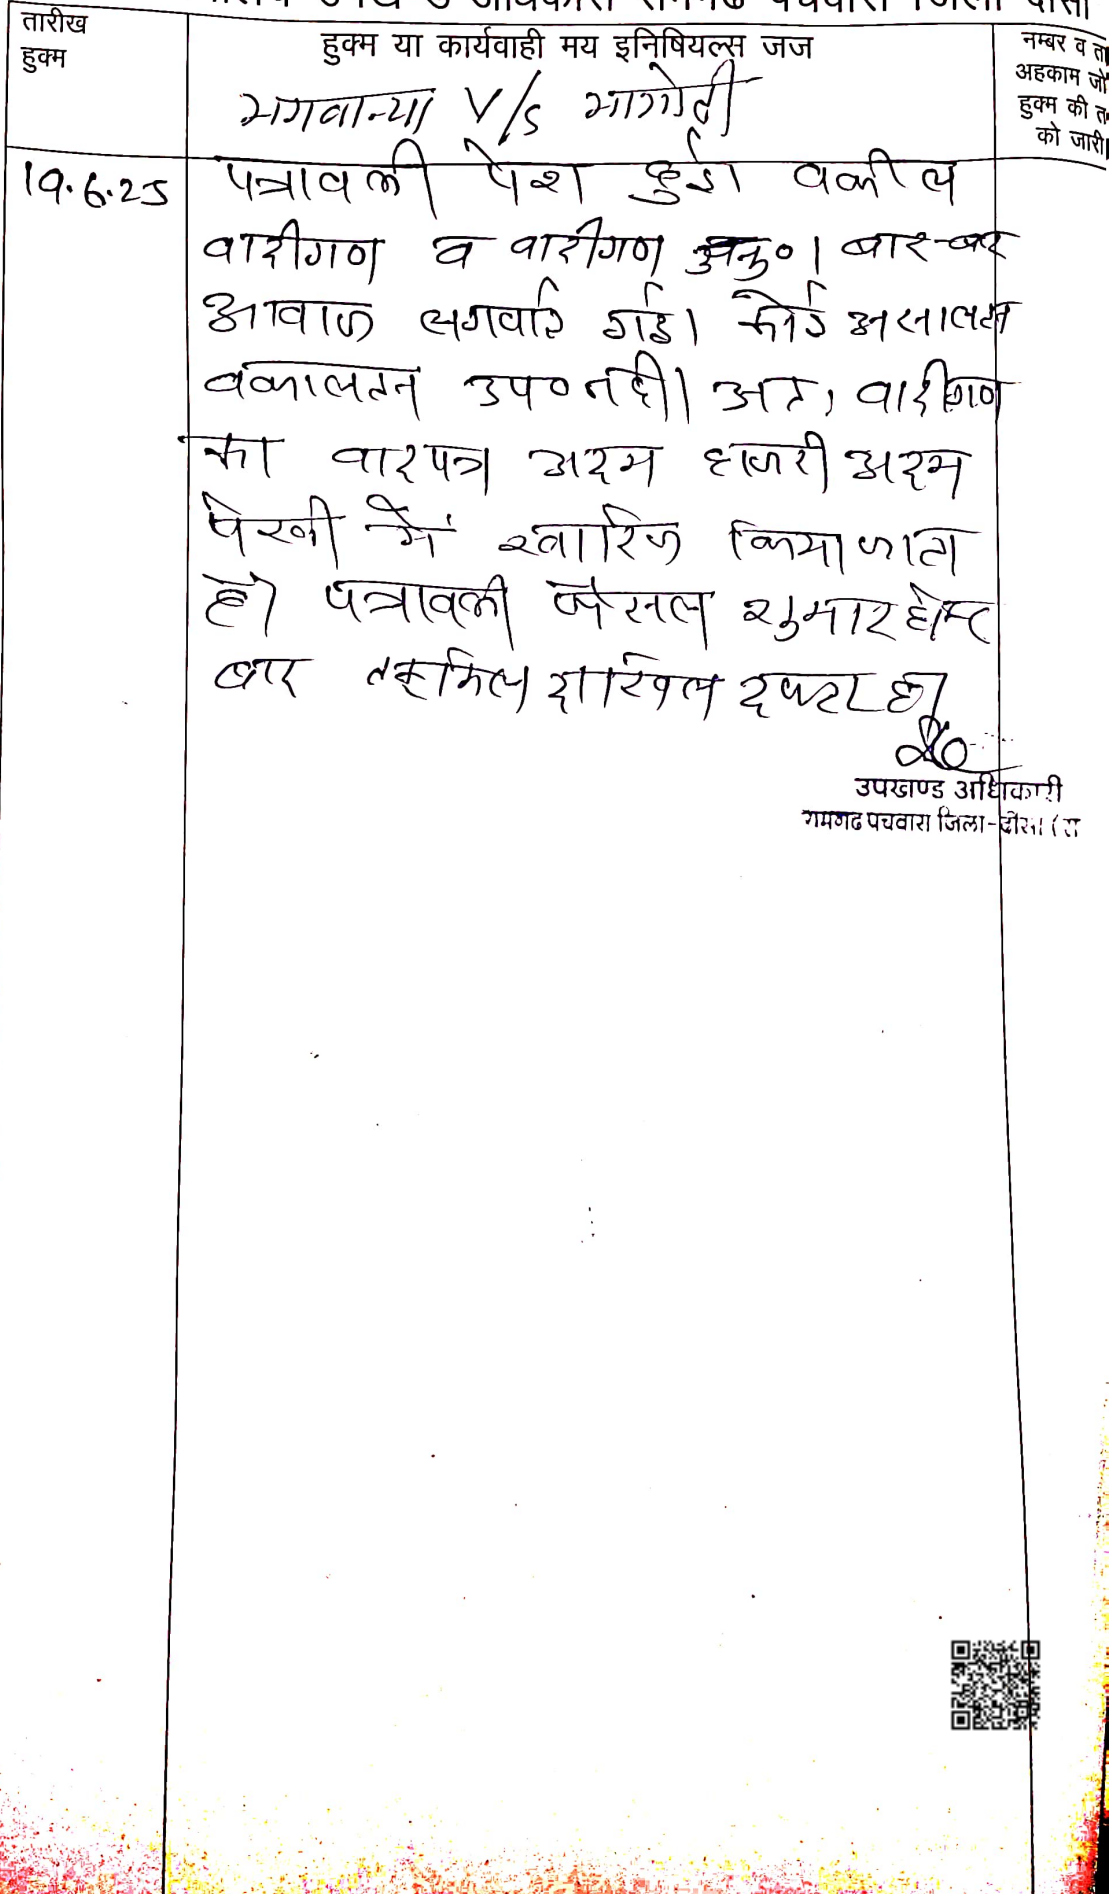 उपखण्ड अधिकारी रामगढ पचवारा जिला दौसा
तारीख
हुक्म
हुक्म या कार्यवाही मय इनिषियल्स जज
नम्बर व ता
अहकाम जो
हुक्म की त
को जारी
भगवान्या V/S भागोती
19.6.25
पत्रावली पेश हुई। वकील
वादीगण व वादीगण अनु०। बार-बार
आवाज लगवाई गई। कोई असालतन
वकालतन उप० नही। अतः वादीगण
का वादपत्र अदम हाजरी अदम
पेरवी में खारिज किया जाता
है। पत्रावली फेसल शुमार होकर
बाद तकमिल दाखिल दफ्तर हो।
उपखण्ड अधिकारी
रामगढ पचवारा जिला-दौसा (रा